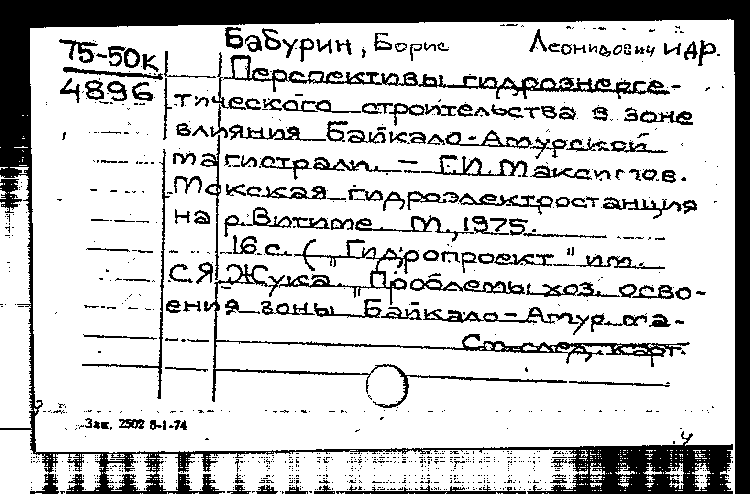 Бабурин, Борис Леонидович и др.
75-50к
4896
Перспективы гидроэнерге-
тического строительства в зоне
влияния Байкало-Амурской
магистрали. — Г.И. Максимов.
Мокская гидроэлектростанция
на р. Витиме. М., 1975.
16 с. („Гидропроект" им.
С.Я. Жука. „Проблемы хоз. осво-
ения зоны Байкало-Амур. ма-
См. след. карт.
Зак. 2502 8-1-74